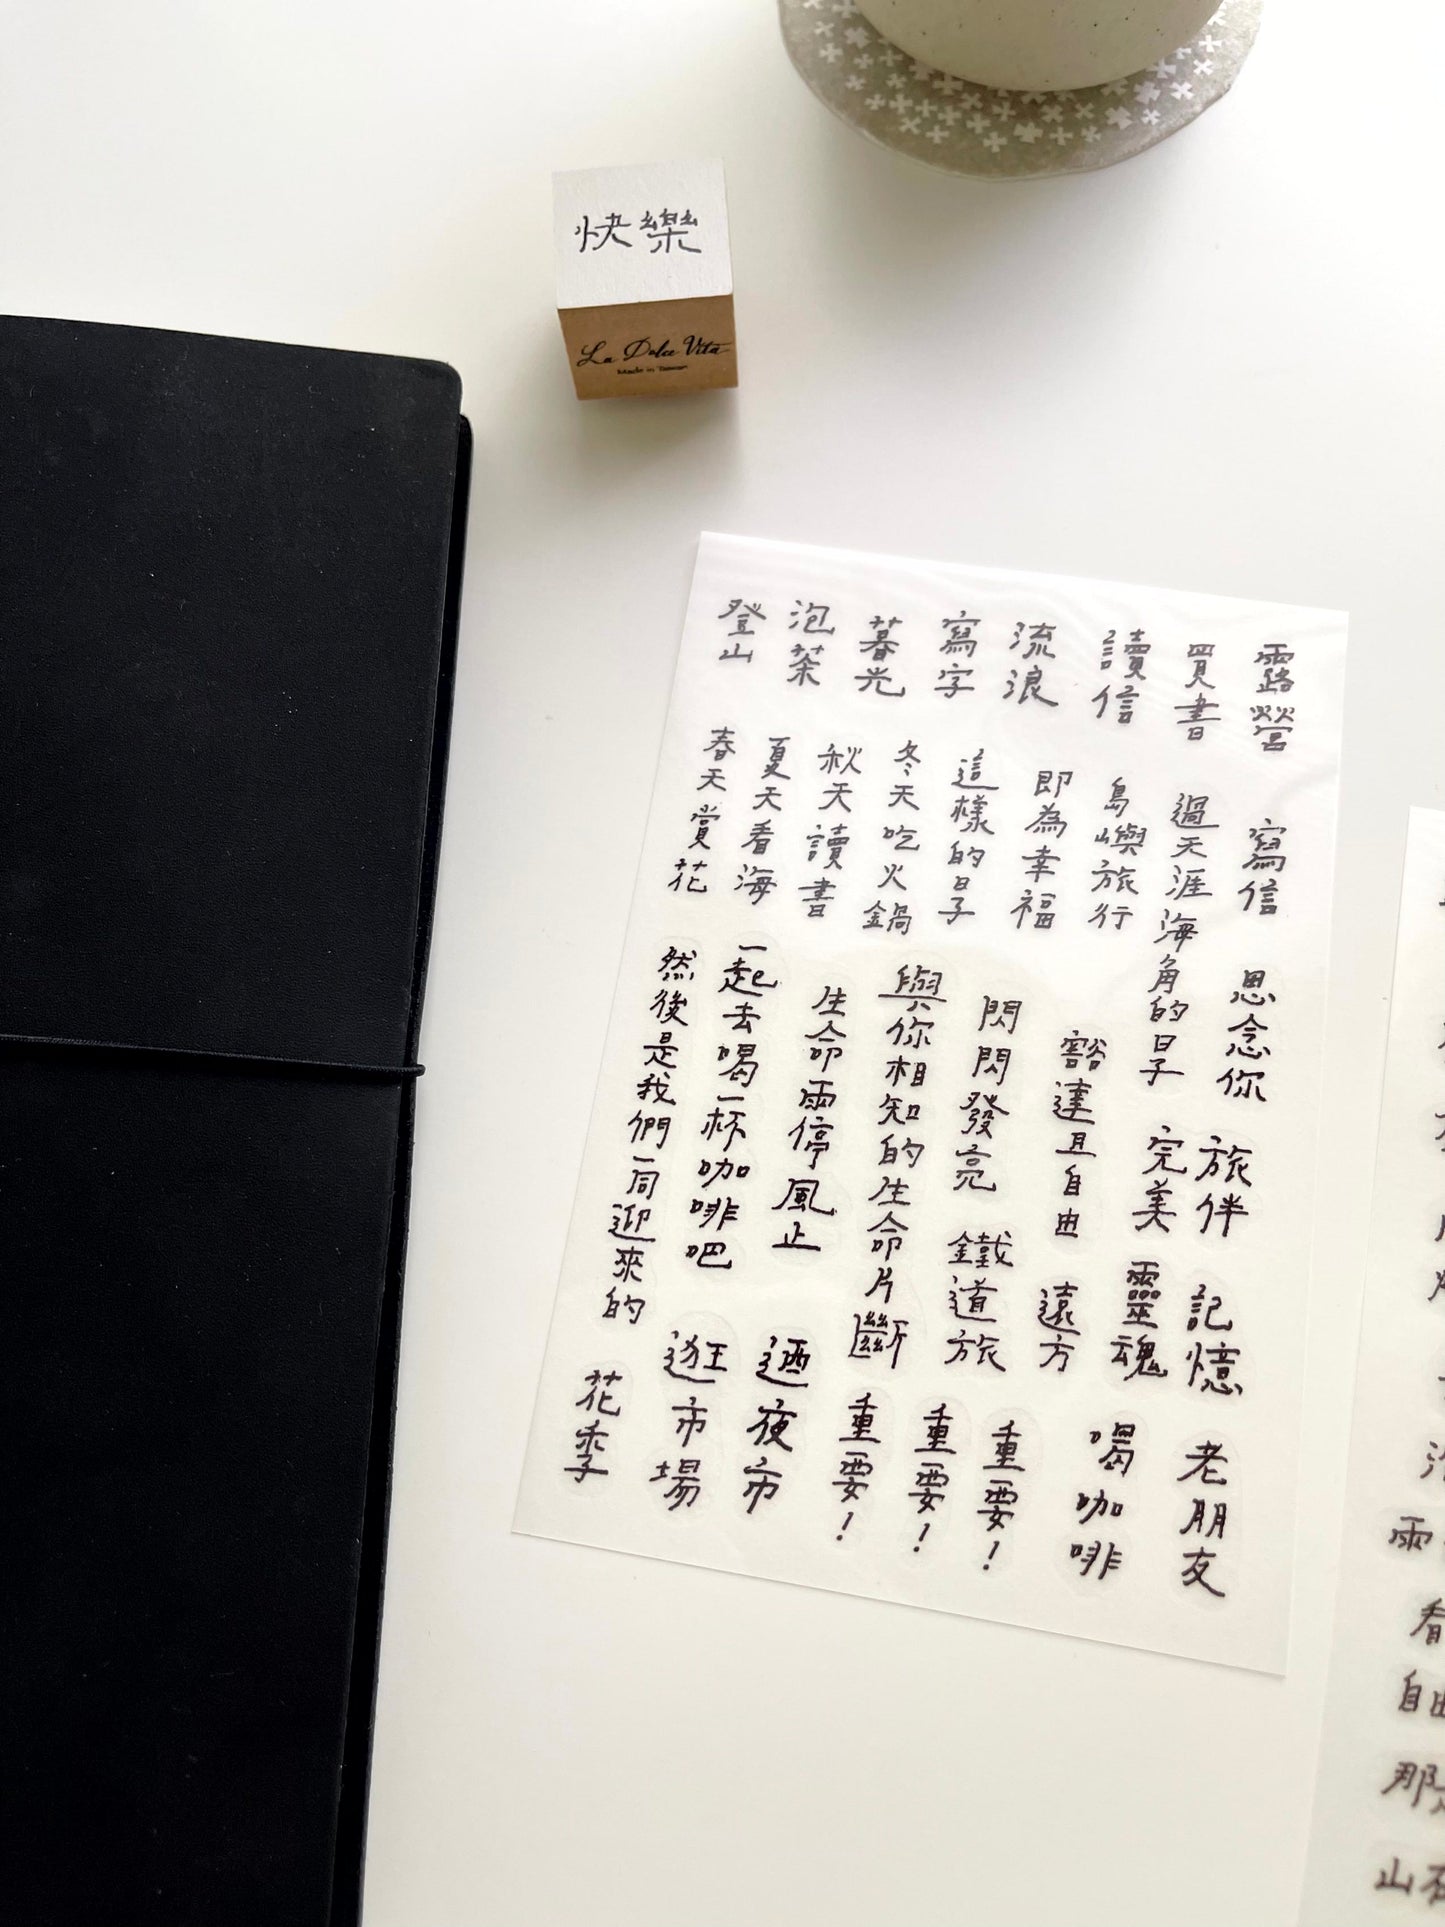 快樂
La Dolce Vita
Made in Taiwan
登山
泡茶
暮光
寫字
流浪
讀信
買書
露營
春天賞花
夏天看海
秋天讀書
冬天吃火鍋
這樣的日子
即為幸福
島嶼旅行
過天涯海角的日子
寫信
然後是我們一同迎來的
一起去喝一杯咖啡吧
生命雨停風止
與你相知的生命片斷
閃閃發亮
豁達且自由
思念你
完美
旅伴
鐵道旅
遠方
靈魂
記憶
花季
逛市場
迺夜市
重要!
重要!
重要!
喝咖啡
老朋友
雨
看
自由
那
山